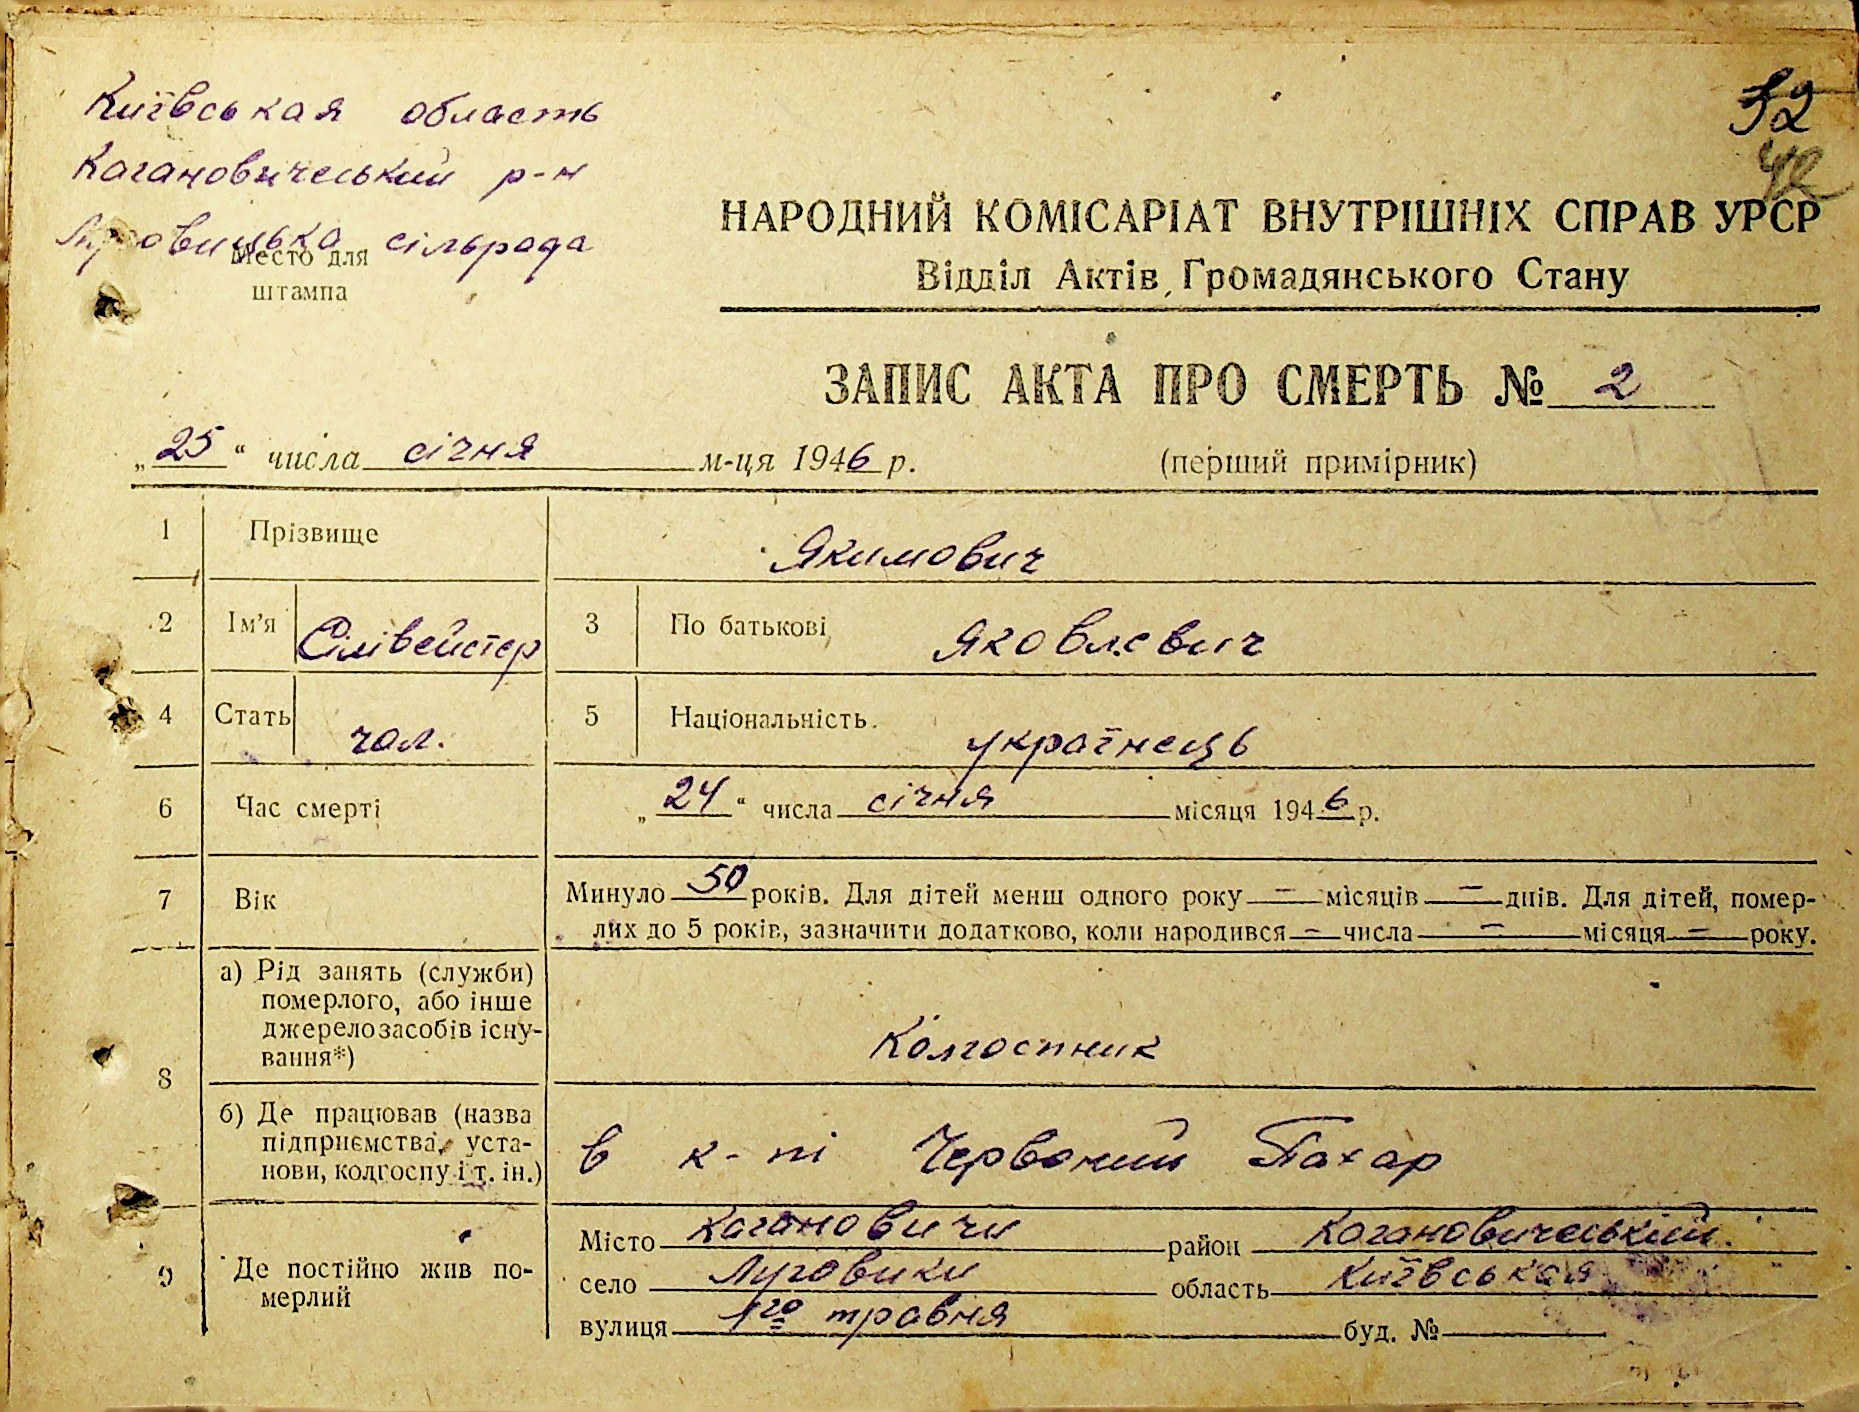 Київськая область
Кагановичеський р-н
Луговицька сільрада
Место для
штампа
32
42
НАРОДНИЙ КОМІСАРІАТ ВНУТРІШНІХ СПРАВ УРСР
Відділ Актів Громадянського Стану
ЗАПИС АКТА ПРО СМЕРТЬ № 2
„25“ числа січня м-ця 1946 р. (перший примірник)
1 Прізвище Якимович
2 Ім'я Сілівейстер 3 По батькові Яковлевич
4 Стать чол. 5 Національність українець
6 Час смерті „24“ числа січня місяця 1946 р.
7 Вік Минуло 50 років. Для дітей менш одного року — місяців — днів. Для дітей, помер-
лих до 5 років, зазначити додатково, коли народився — числа — місяця — року.
8 а) Рід занять (служби)
померлого, або інше
джерело засобів існу-
вання*) Колгоспник
б) Де працював (назва
підприємства, уста-
нови, колгоспу і т. ін.) в к-пі Червоний Пахар
9 Де постійно жив по-
мерлий
Місто Кагановичи район Кагановичеський
село Луговики область Київськая
вулиця 1го травня буд. №